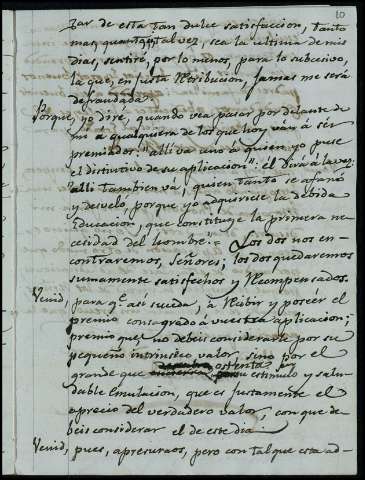 10
tar de esta tan dulce satisfaccion, tanto
mas, quanto, tal vez, sea la ultima de mis
dias, sentiré, por lo menos, para lo subcesivo,
la que, en justa Retribucion, jamas me será
defraudada.
Porque, yo diré, quando vea pasar por delante de
mi a qualquiera de los que hoy van á sér
premiados: allí va uno á quien yo puse
el distintivo de su aplicacion: él dirá á la vez:
alli tambien va, quien tanto se afanó
y desveló, porque yo adquiriese la debida
Educacion, que constituye la primera ne-
cesidad del hombre. Los dos nos en-
contraremos, Señores; los dos quedaremos
sumamente satisfechos y Recompensados.
Venid, para q.e asi suceda, á Recibir y poseér el
premio consagrado á vuestra aplicacion;
premio que no debeis considerarle por su
pequeño intrinseco valor, sino por el
grande que ostenta su
estimulo y salu-
dable Emulacion, que es justamente el
aprecio del verdadero valor, con que de-
beis considerar el de este dia.
Venid, pues, apresuraos, pero con tal que esta ad-